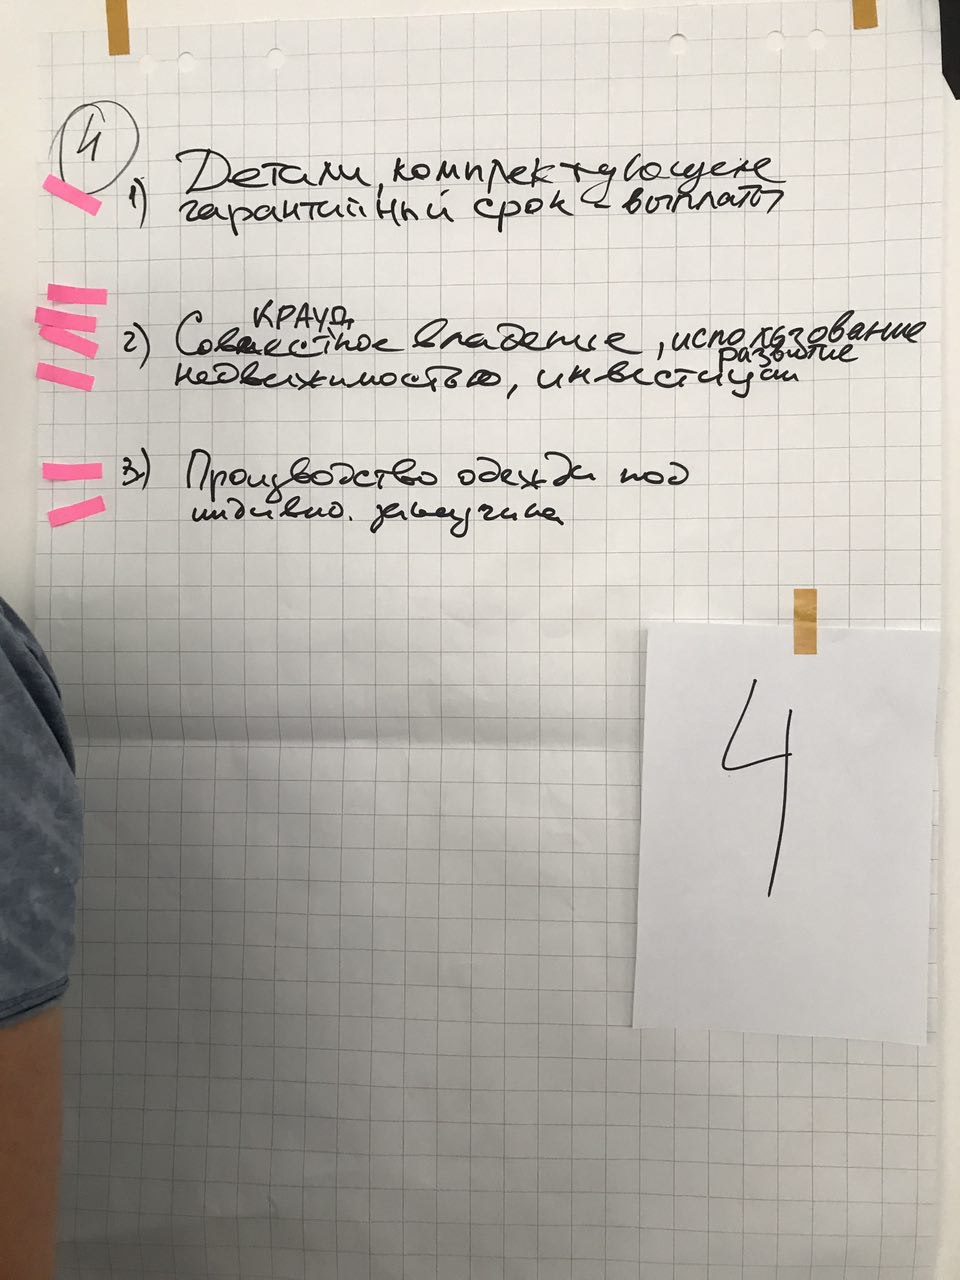 4
1) Детали, комплектующие
гарантийный срок - выплаты
КРАУД
2) Совместное владение, использование
развитие
недвижимостью, инвестиции
3) Производство одежды под
индивид. заказчика
4